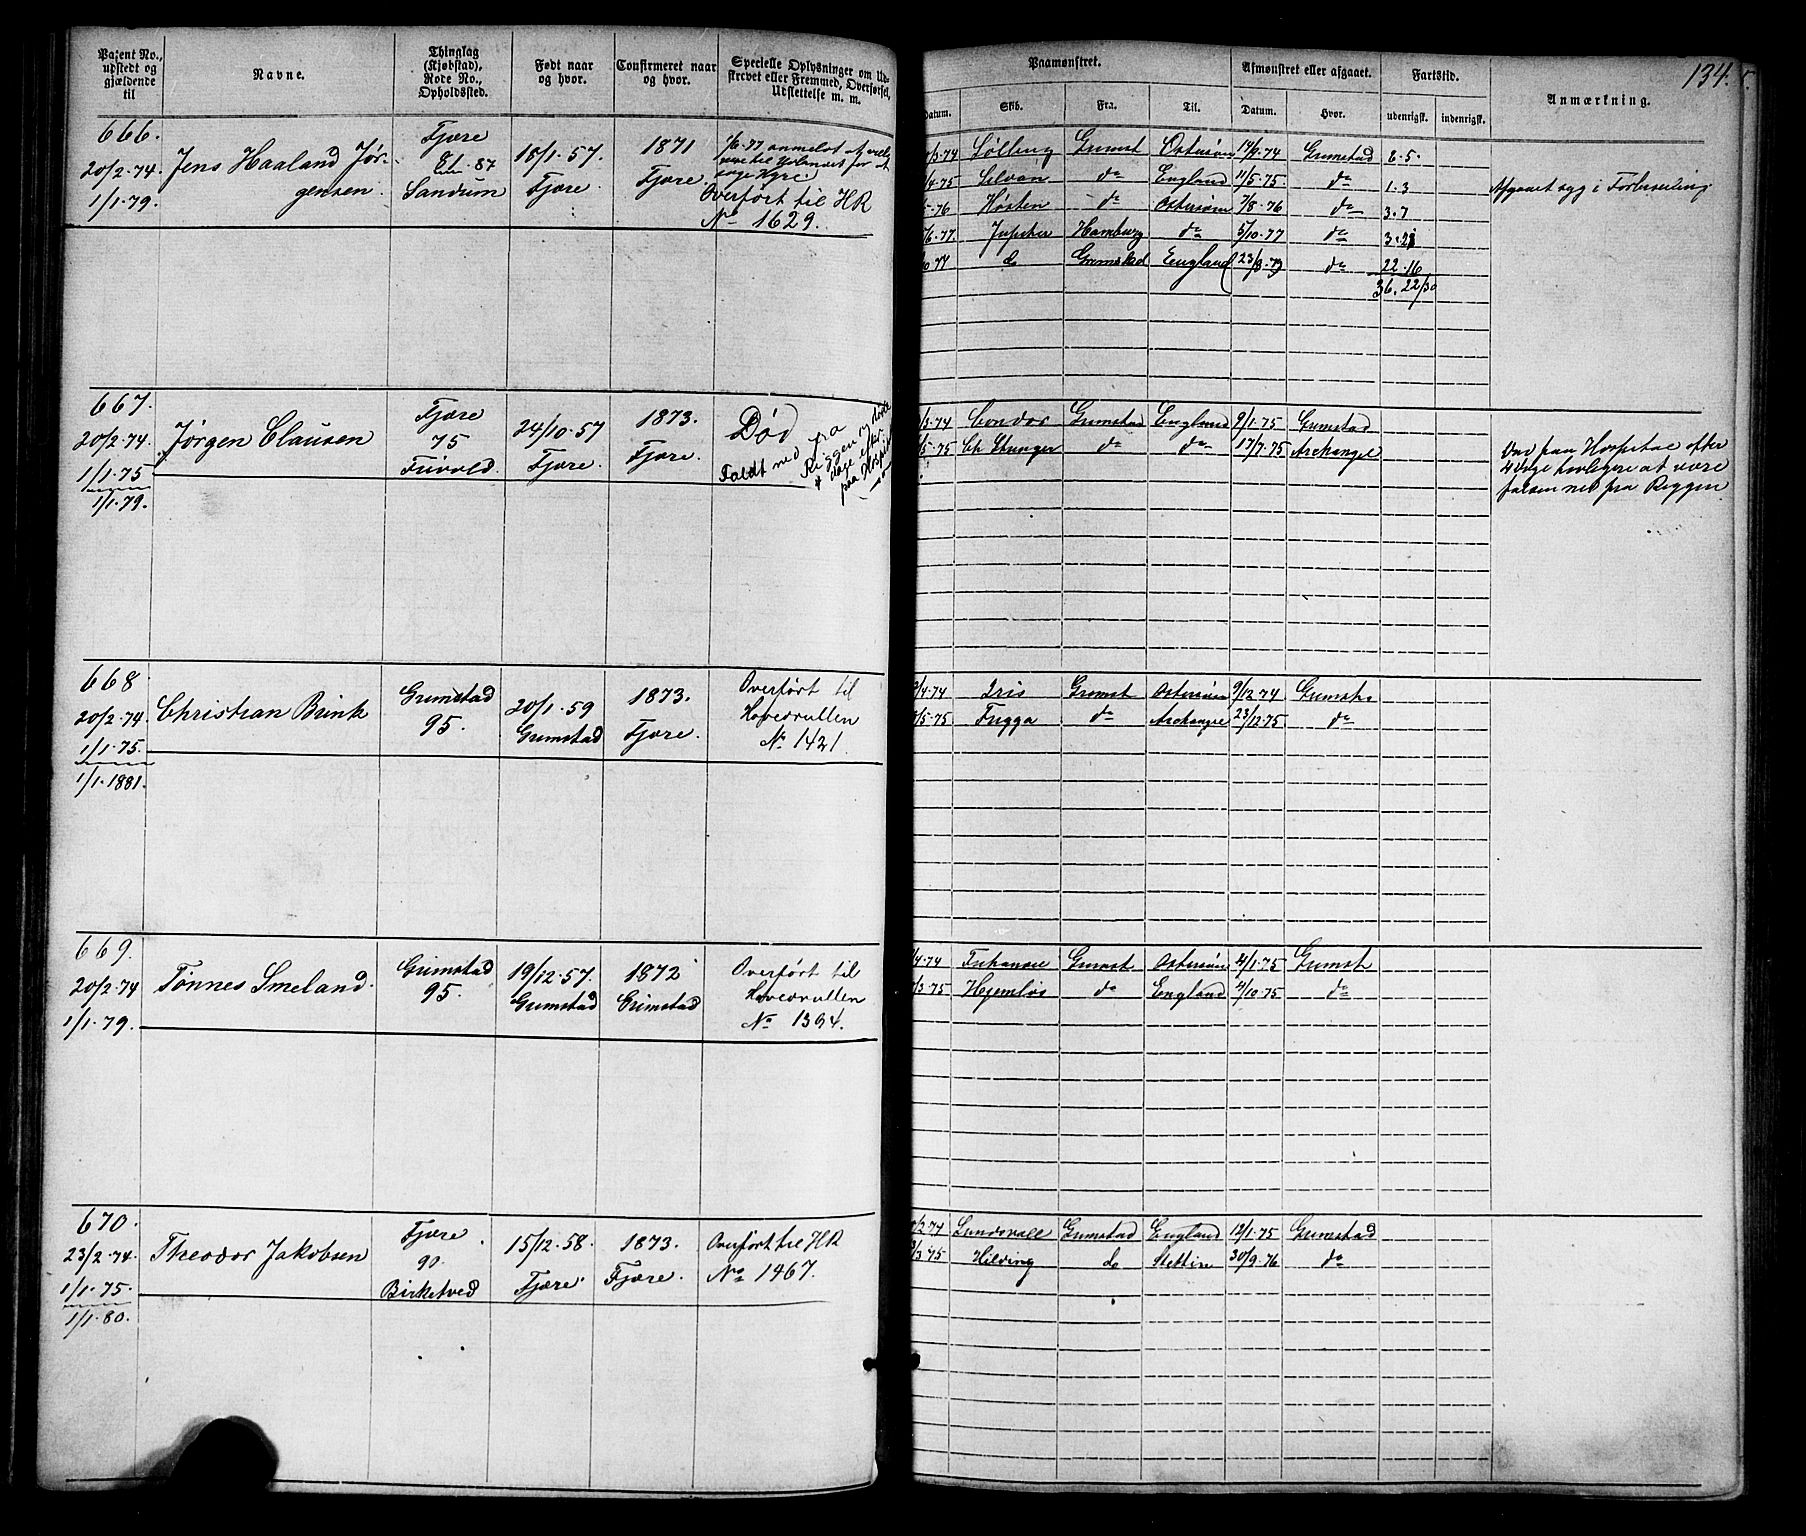 Patent No., udstedt og gjældende til
Navne.
Thinglag (Kjøbstad), Rode No., Opholdssted.
Født naar og hvor.
Confirmeret naar og hvor.
Specielle Oplysninger om Udskrevet eller Fremmed, Overførsel, Udslettelse m. m.
Paamønstret.
Datum.
Skib.
Fra.
Til.
Afmønstret eller afgaaet.
Datum.
Hvor.
Fartstid.
udenrigsk.
indenrigsk.
Anmærkning.
134.
666.
20/2-74.
1/1-79.
Jens Haaland Jør-
gensen
Fjære
87
Sandum
18/1-57.
Fjære
1871
Fjære
1/6-77 anmeldt at
Overført til HR
No 1629.
/3-74 Sølling Grimst Østersøen 14/9-74 Grimstad 8-5.
/4-75 Silvan do England 11/5-75 do 1-3 Afgaaet syg i
-76 Høsten do Østersøen 7/8-76 do 3-7
/6-77. Jupiter Hamburg do 5/10-77 do 3-21
-77 do Grimstad England 23/8-79 do 22-16
36. 22/30
667.
20/2-74.
1/1-75
1/1-79.
Jørgen Clausen
Fjære
75
Frivold
24/10-57
Fjære.
1873.
Fjære.
Død
Faldt ned fra
Riggen og døde
4 dage efter
paa Hospital
/3-74 Condor Grimstad England 9/1-75 Grimstad
/5-75 Ch Stranger do do 17/7-75 Archangel
Døde paa Hospital efter
4 dage at være
falden ned fra Riggen
668
20/2-74
1/1-75
1/1-1881.
Christian Brink
Grimstad
95.
20/1-59
Grimstad
1873.
Fjære.
Overført til
Hovedrullen
No 1421.
/4-74 Iris Grimst Østersøen 9/12-74 Grimst
/5-75 Frigga do Archangel 23/12-75 do
669.
20/2-74
1/1-79.
Tønnes Smeland.
Grimstad
95.
19/12-57.
Grimstad
1872
Grimstad
Overført til
Hovedrullen
No 1394.
/4-74 Grimst Østersøen 4/1-75 Grimst
/3-75 Hjemløs do England 4/10-75 do
670.
23/2-74.
1/1-75.
1/1-80.
Theodor Jakobsen
Fjære
90.
Birketved
15/12-58.
Fjære
1873.
Fjære.
Overført til HR
No 1467.
/2-74 Sundsvall Grimstad England 12/1-75 Grimstad
/3-75 Hilding do Stettin 30/9-76 do